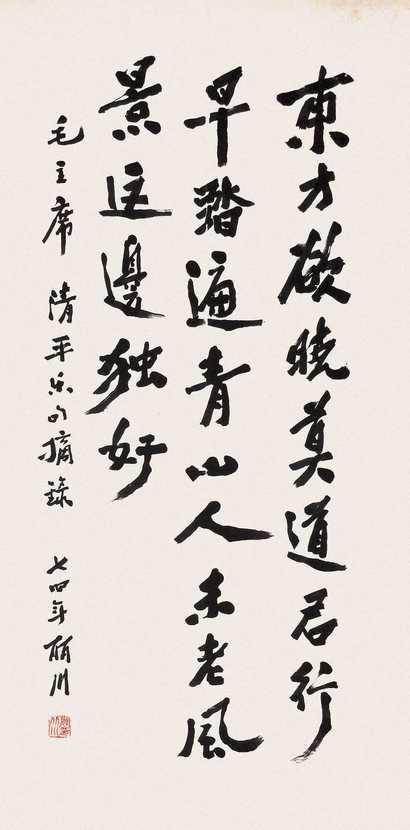 東方欲晓莫道君行
早踏遍青山人未老風
景这邊独好
毛主席清平乐句摘錄 七四年